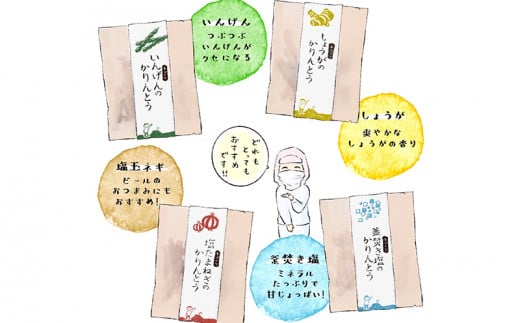 いんげん
つぶつぶ
いんげんが
クセになる
いんげんの
かりんとう
しょうがの
かりんとう
しょうが
爽やかな
しょうがの香り
塩玉ネギ
ビールの
おつまみにも
おすすめ!
どれも
とっても
おすすめ
です!!
塩たまねぎの
かりんとう
釜焚き塩
ミネラル
たっぷりで
甘じょっぱい!
釜焚き塩の
かりんとう